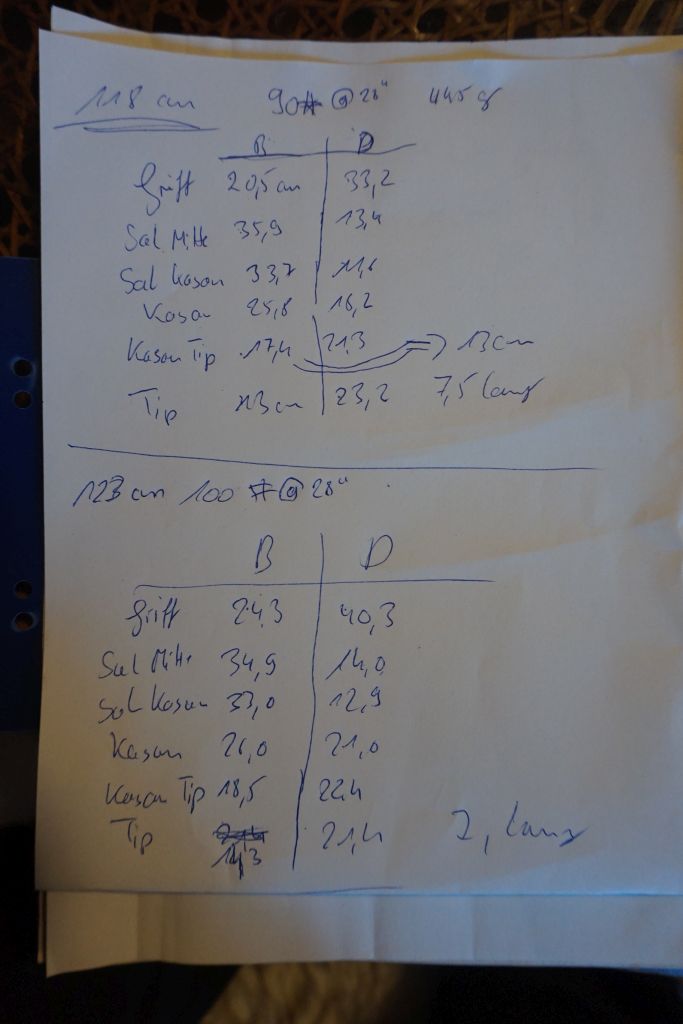 118 cm 90# @ 28" 445 g
B D
Griff 20,5 cm 33,2
Sal Mitte 35,9 13,4
Sal Kasan 33,7 11,6
Kasan 25,8 16,2
Kasan Tip 17,4 21,3 => 13 cm
Tip 13 cm 23,2 7,5 lang
123 cm 100 # @ 28"
B D
Griff 24,3 40,3
Sal Mitte 34,9 14,0
Sal Kasan 33,0 12,9
Kasan 26,0 21,0
Kasan Tip 18,5 22,4
Tip 21,4
14,3
7, lang